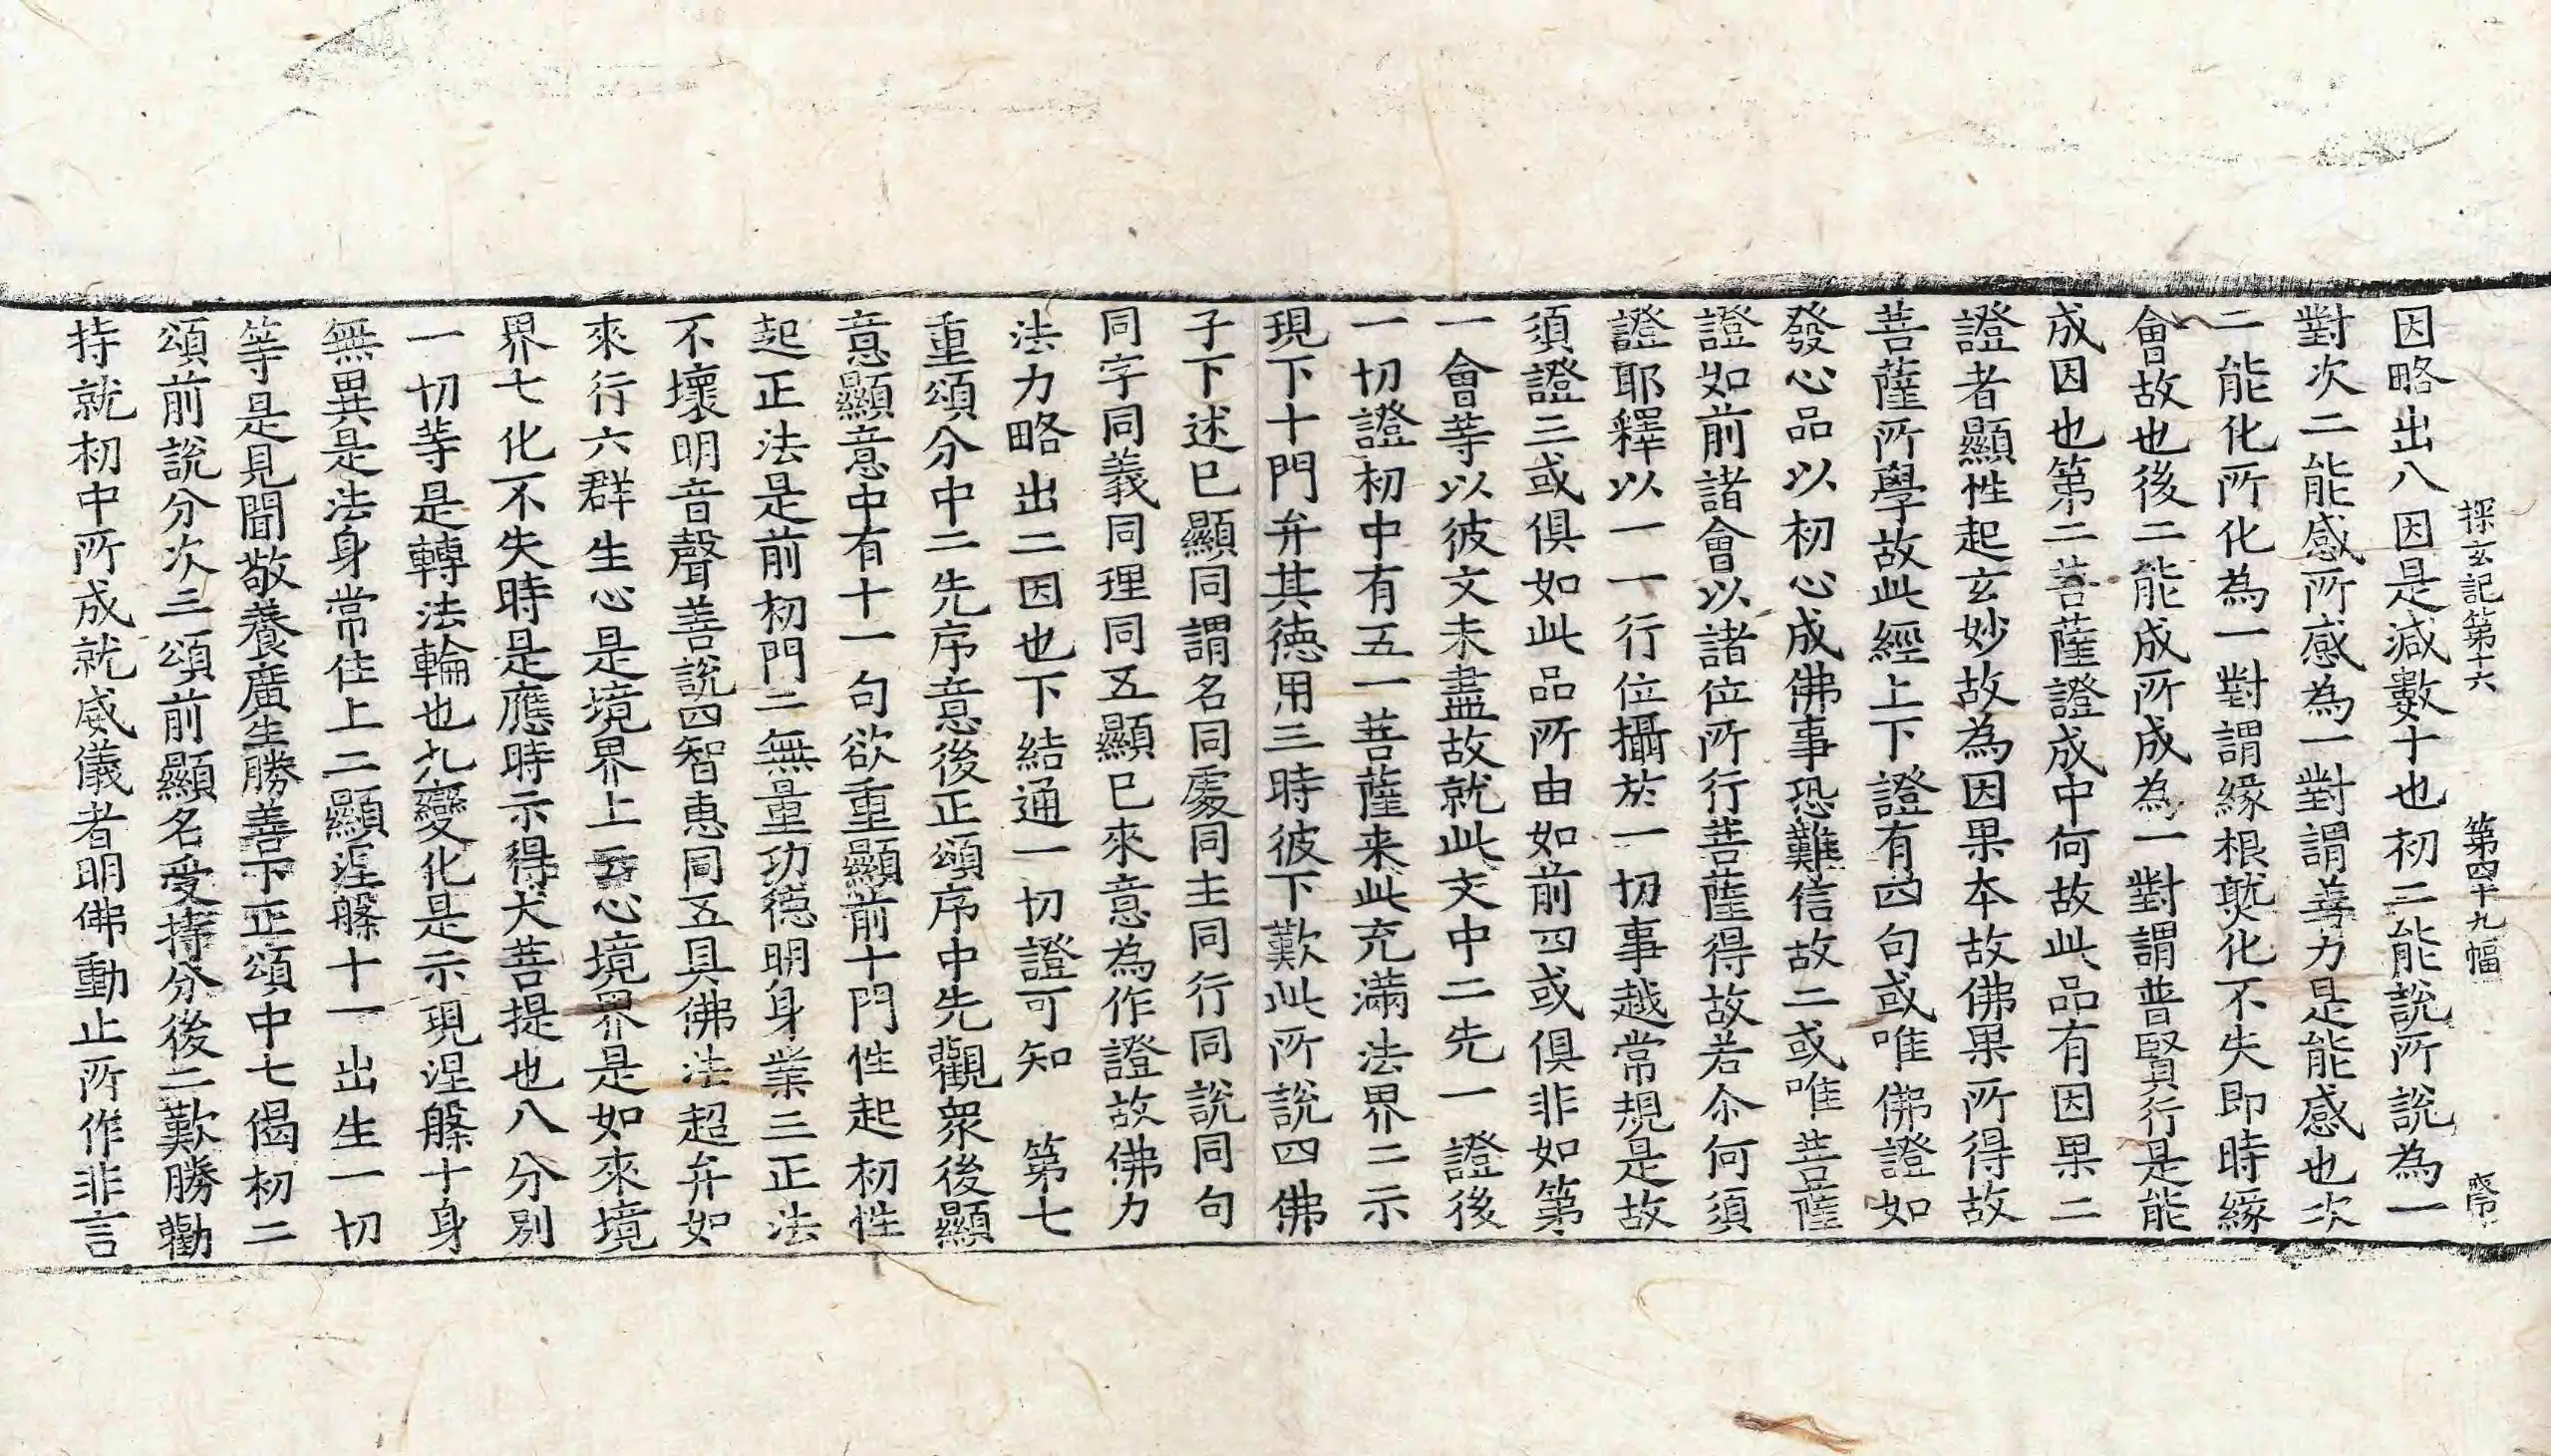 探玄記第十六 第四十九幅
因略出八因是減數十也初二能說所說為一
對次二能感所感為一對謂善力是能感也次
二能化所化為一對謂緣根熟化不失即時緣
會故也後二能成所成為一對謂普賢行是能
成因也第二菩薩證成中何故此品有因果二
證者顯性起玄妙故為因果本故佛果所得故
菩薩所學故此經上下證有四句或唯佛證如
發心品以初心成佛事恐難信故二或唯菩薩
證如前諸會以諸位所行菩薩得故若尒何須
證耶釋以一一行位攝於一切事越常規是故
須證三或俱如此品所由如前四或俱非如第
一會等以彼文未盡故就此文中二先一證後
一切證初中有五一菩薩来此充滿法界二示
現下十門弁其德用三時彼下歎此所說四佛
子下述已顯同謂名同處同主同行同說同句
同字同義同理同五顯已來意為作證故佛力
法力略出二因也下結通一切證可知 第七
重頌分中二先序意後正頌序中先觀衆後顯
意顯意中有十一句欲重顯前十門性起初性
起正法是前初門二無量功德明身業三正法
不壞明音聲善說四智恵同五具佛法超弁如
來行六群生心是境界上五心境界是如來境
界七化不失時是應時示得大菩提也八分別
一切等是轉法輪也九變化是示現涅槃十身
無異是法身常住上二顯涅槃十一出生一切
等是見聞敬養廣生勝善下正頌中七偈初二
頌前說分次三頌前顯名受持分後二歎勝勸
持就初中所成就威儀者明佛動止所作非言